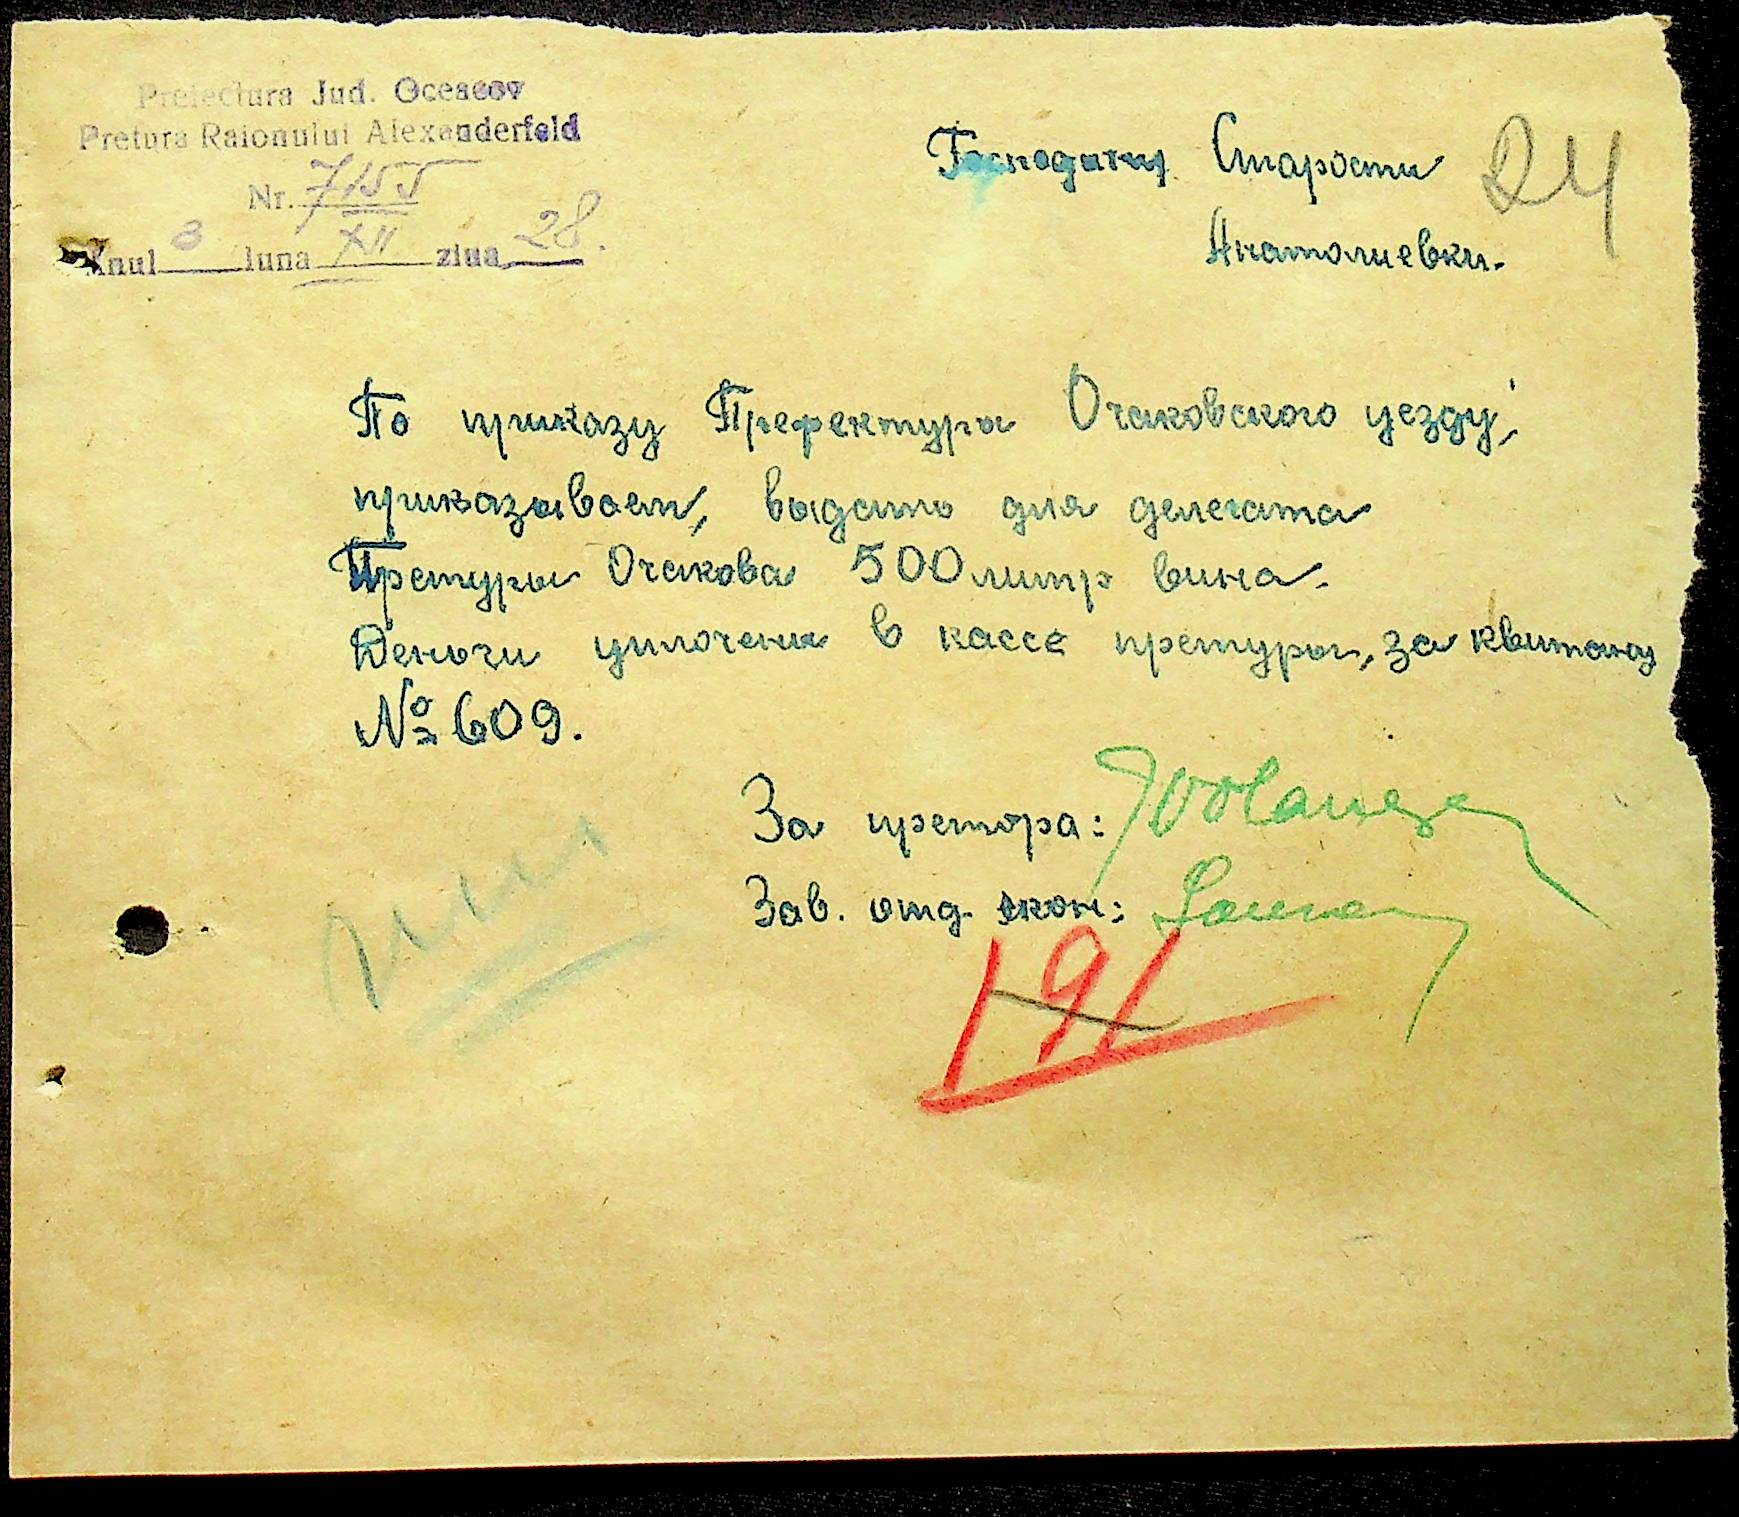 Prefectura Jud. Oceacov
Pretura Raionului Alexanderfeld
Nr. 7155
Anul 3 luna XII ziua 28.
Господину Старости
Анатолиевки.
24
По приказу Префектуры Очаковского уезду,
приказываем, выдать для делегата
Претуры Очакова 500 литр вина.
Деньги уплочени в кассе претуры, за квитанц
№ 609.
За претора:
Зав. отд. экон:
191